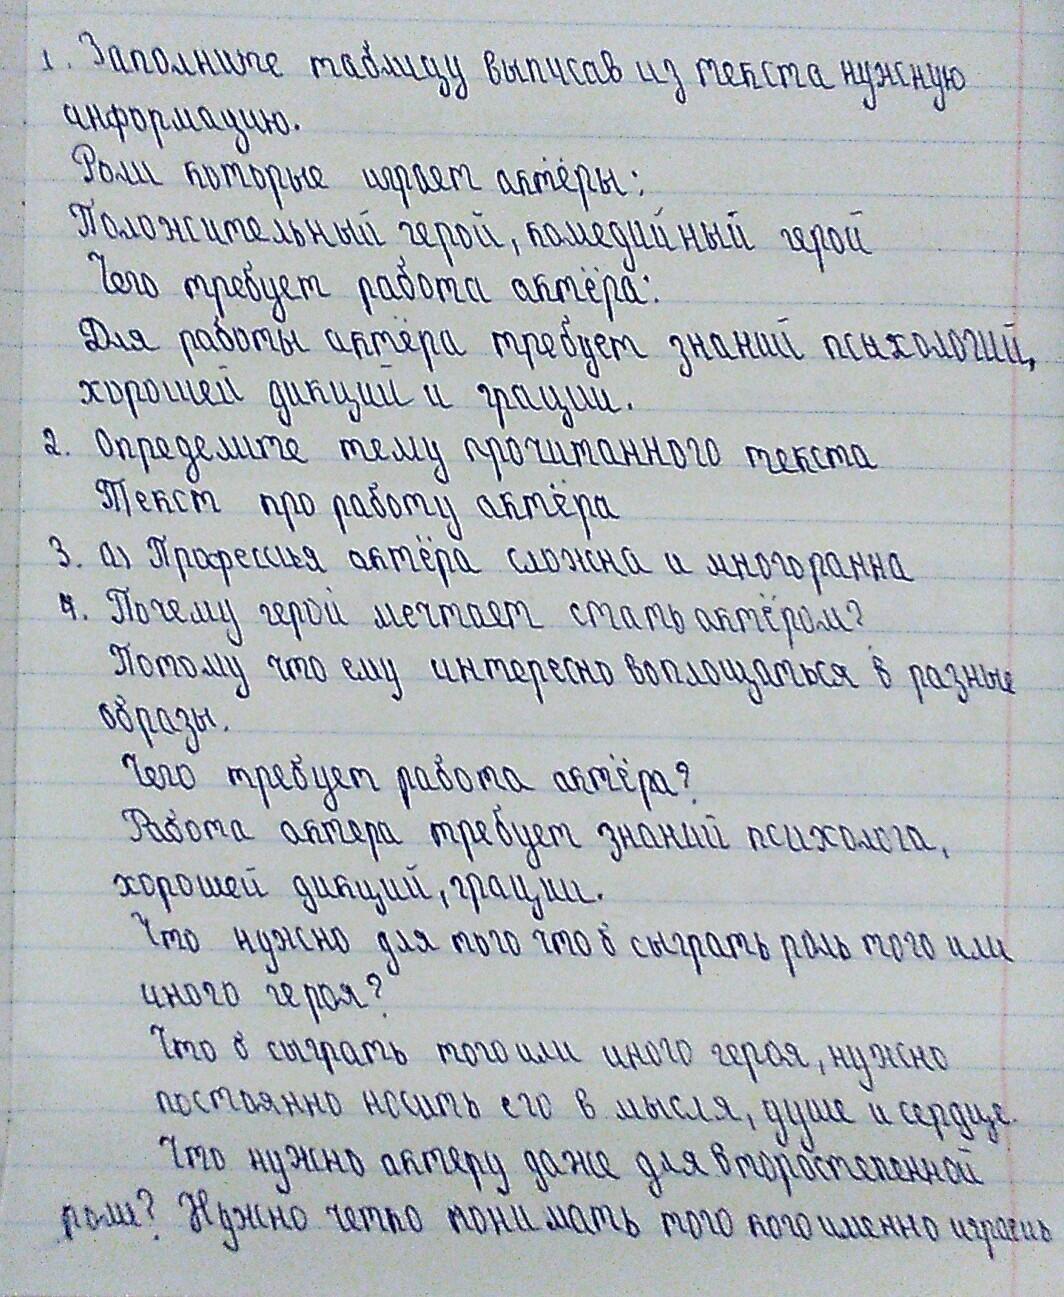 1. Заполните таблицу выписав из текста нужную
информацию.
Роли которые играет актёры:
Положительный герой, комедийный герой
Чего требует работа актёра:
Для работы актёра требует знаний психологий,
хорошей дикций и грации.
2. Определите тему прочитанного текста
Текст про работу актёра
3. а) Профессия актёра сложна и многоранна
4. Почему герой мечтает стать актёром?
Потому что ему интересно воплощаться в разные
образы.
Чего требует работа актёра?
Работа актера требует знаний психолога,
хорошей дикций, грации.
Что нужно для того что б сыграть роль того или
иного героя?
Что б сыграть того или иного героя, нужно
постоянно носить его в мысля, душе и сердце.
Что нужно актеру даже для второстепенной
роли? Нужно четко понимать того кого именно играешь